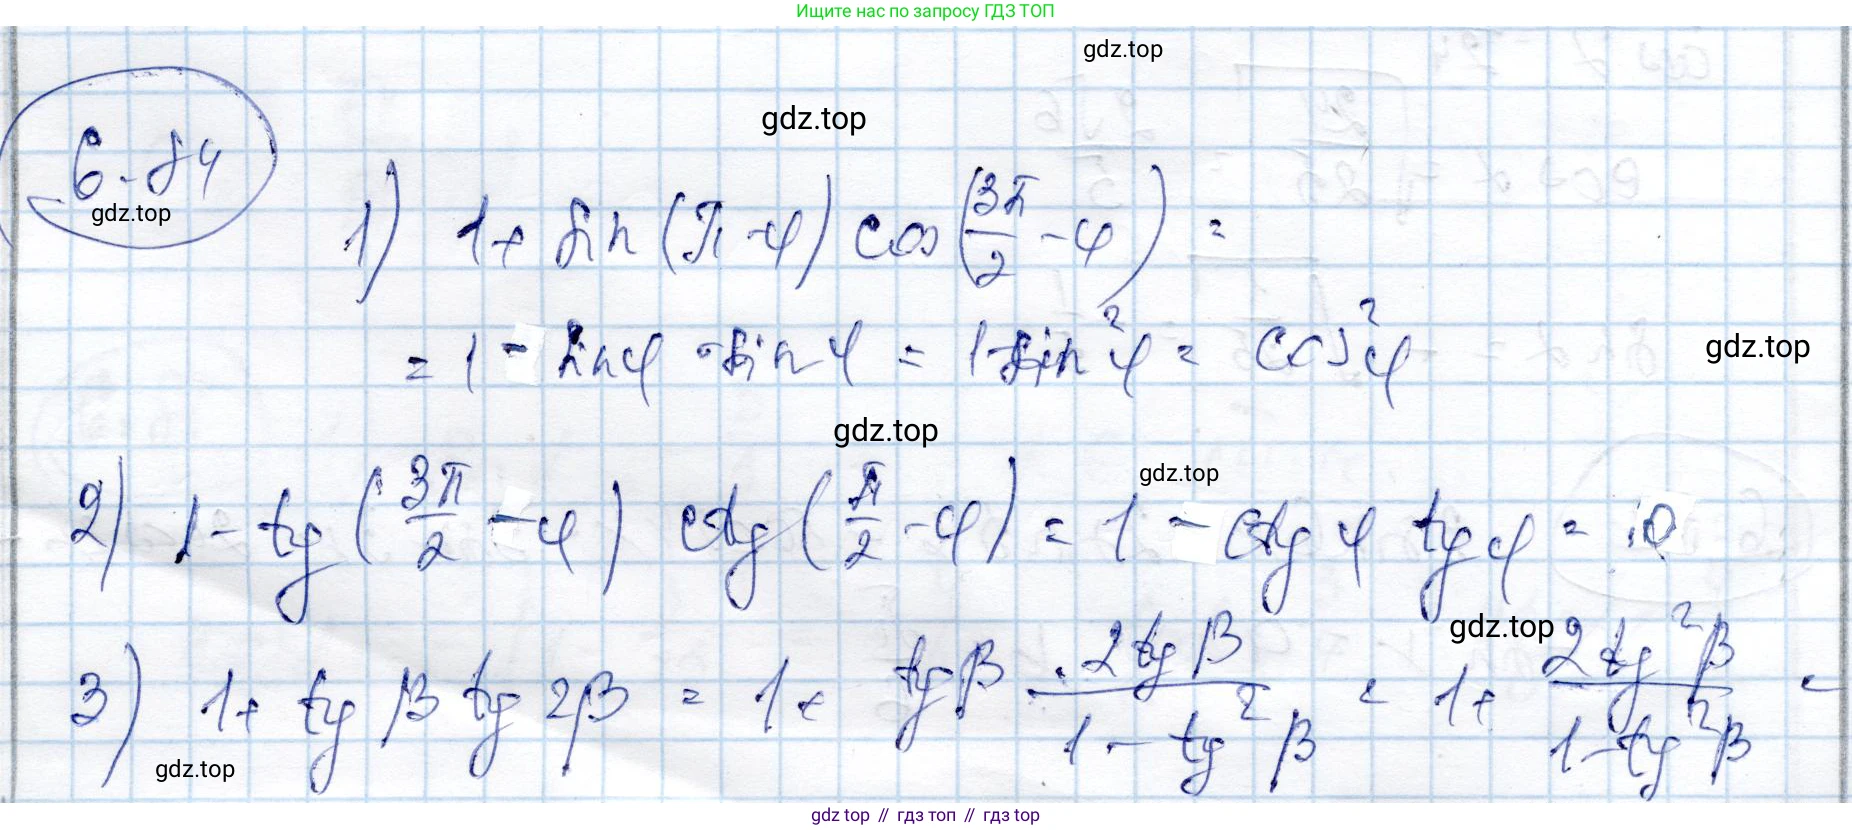 Ищите нас по запросу ГДЗ ТОП
gdz.top
gdz.top
6.84
gdz.top
1) 1 + sin(π - φ) cos(3π/2 - φ) =
= 1 - sin φ · sin φ = 1 - sin²φ = cos²φ
gdz.top
gdz.top
gdz.top
2) 1 - tg(3π/2 - φ) ctg(π/2 - φ) = 1 - ctg φ tg φ = 0
gdz.top
3) 1 + tg β tg 2β = 1 + tg β · 2tg β / (1 - tg²β) = 1 + 2tg²β / (1 - tg²β) =
gdz.top
gdz top // гдз топ // gdz top